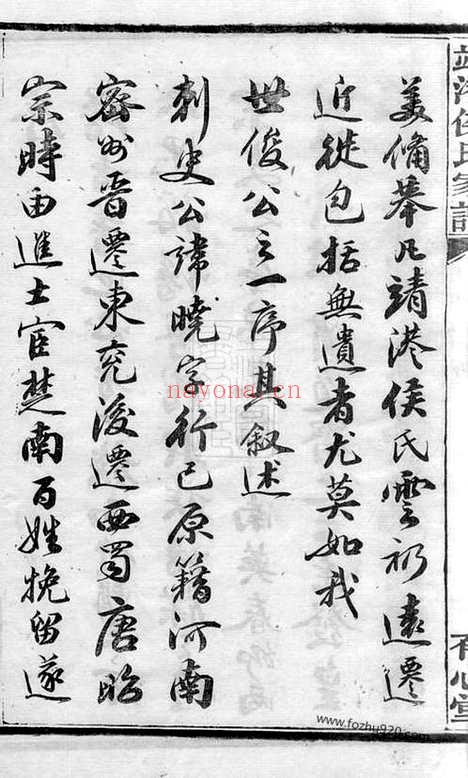 美備舉凡靖港侯氏雲礽遠遷
近徙包括無遺者尤莫如我
世俊公之一序其叙述
刺史公諱曉字行已原籍河南
密州晉遷東兖後遷西蜀唐昭
宗時由進士宦楚南百姓挽留遂
靖港侯氏家譜
有心堂
nayona.cn
www.fozhu920.com